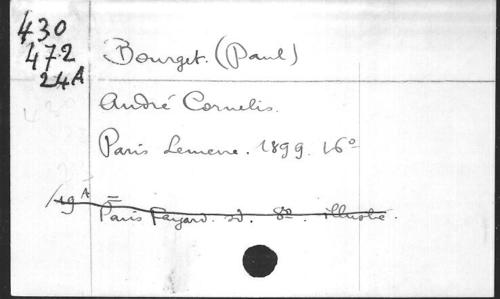 430
472
24A
Bourget. (Paul)
André Cornelis.
Paris Lemerre. 1899. 16º
19 A =
Paris Fayard. sd. 8º. illustré.